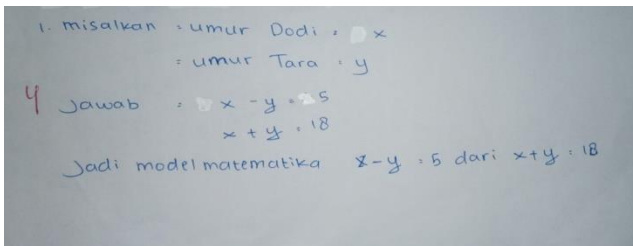 1. misalkan : umur Dodi : x
: umur Tara : y
4 Jawab : x - y = 5
x + y = 18
Jadi model matematika x - y = 5 dari x + y = 18